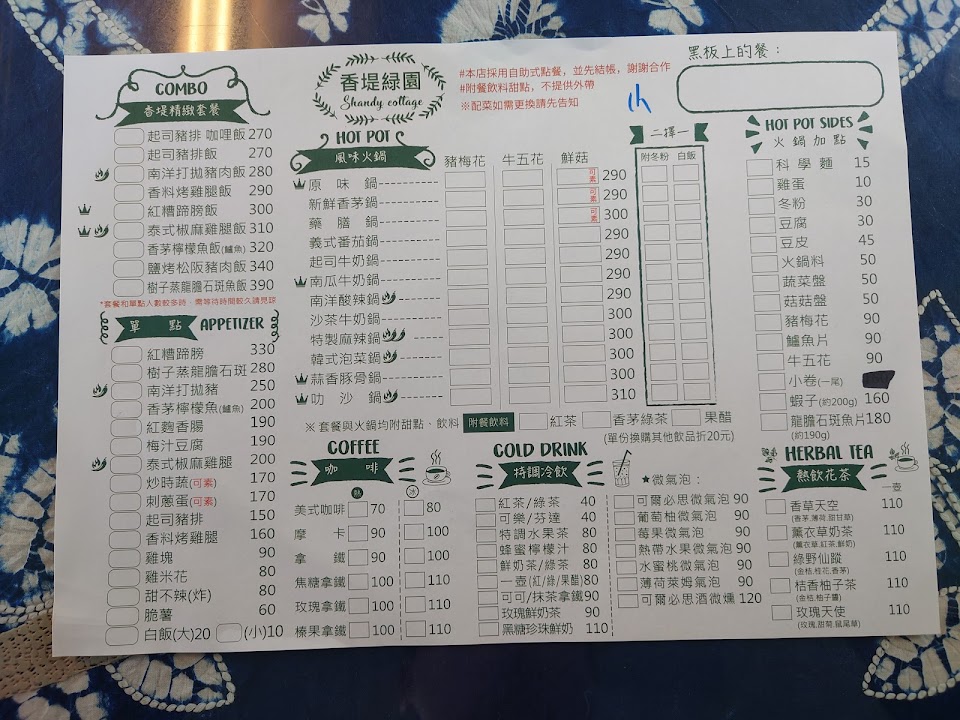 COMBO
香堤精緻套餐
起司豬排 咖哩飯 270
起司豬排飯 270
南洋打拋豬肉飯 280
香料烤雞腿飯 290
紅糟蹄膀飯 300
泰式椒麻雞腿飯 310
香茅檸檬魚飯(鱸魚) 320
鹽烤松阪豬肉飯 340
樹子蒸龍膽石斑魚飯 390
*套餐和單點人數較多時、需等待時間較久請見諒
單點 APPETIZER
紅糟蹄膀 330
樹子蒸龍膽石斑 280
南洋打拋豬 250
香茅檸檬魚(鱸魚) 200
紅麴香腸 190
梅汁豆腐 190
泰式椒麻雞腿 200
炒時蔬(可素) 170
刺蔥蛋(可素) 170
起司豬排 150
香料烤雞腿 160
雞塊 90
雞米花 80
甜不辣(炸) 80
脆薯 60
白飯(大)20 (小)10
香堤綠園
Shandy cottage
#本店採用自助式點餐，並先結帳，謝謝合作
#附餐飲料甜點，不提供外帶
※配菜如需更換請先告知
黑板上的餐：
HOT POT
風味火鍋
豬梅花 牛五花 鮮菇
二擇一
附冬粉 白飯
原味鍋 可素 290
新鮮香茅鍋 可素 290
藥膳鍋 可素 300
義式番茄鍋 290
起司牛奶鍋 290
南瓜牛奶鍋 290
南洋酸辣鍋 290
沙茶牛奶鍋 300
特製麻辣鍋 300
韓式泡菜鍋 300
蒜香豚骨鍋 300
叻沙鍋 310
※ 套餐與火鍋均附甜點、飲料 附餐飲料 紅茶 香茅綠茶 果醋
(單份換購其他飲品折20元)
HOT POT SIDES
火鍋加點
科學麵 15
雞蛋 10
冬粉 30
豆腐 30
豆皮 45
火鍋料 50
蔬菜盤 50
菇菇盤 50
豬梅花 90
鱸魚片 90
牛五花 90
小卷(一尾)
蝦子(約200g) 160
龍膽石斑魚片 180
(約190g)
COFFEE
咖啡
熱 冰
美式咖啡 70 80
摩卡 90 100
拿鐵 90 100
焦糖拿鐵 100 110
玫瑰拿鐵 100 110
榛果拿鐵 100 110
COLD DRINK
特調冷飲
紅茶/綠茶 40
可樂/芬達 40
特調水果茶 80
蜂蜜檸檬汁 80
鮮奶茶/綠茶 80
一壺(紅/綠/果醋) 80
可可/抹茶拿鐵 90
玫瑰鮮奶茶 90
黑糖珍珠鮮奶 110
★微氣泡：
可爾必思微氣泡 90
葡萄柚微氣泡 90
莓果微氣泡 90
熱帶水果微氣泡 90
水蜜桃微氣泡 90
薄荷萊姆微氣泡 90
可爾必思酒微燻 120
HERBAL TEA
熱飲花茶
一壺
香草天空 110
(香茅,薄荷,甜甘草)
薰衣草奶茶 110
(薰衣草,紅茶,鮮奶)
綠野仙蹤 110
(金桔,桂花,香茅)
桔香柚子茶 110
(金桔,柚子醬)
玫瑰天使 110
(玫瑰,甜菊,鼠尾草)